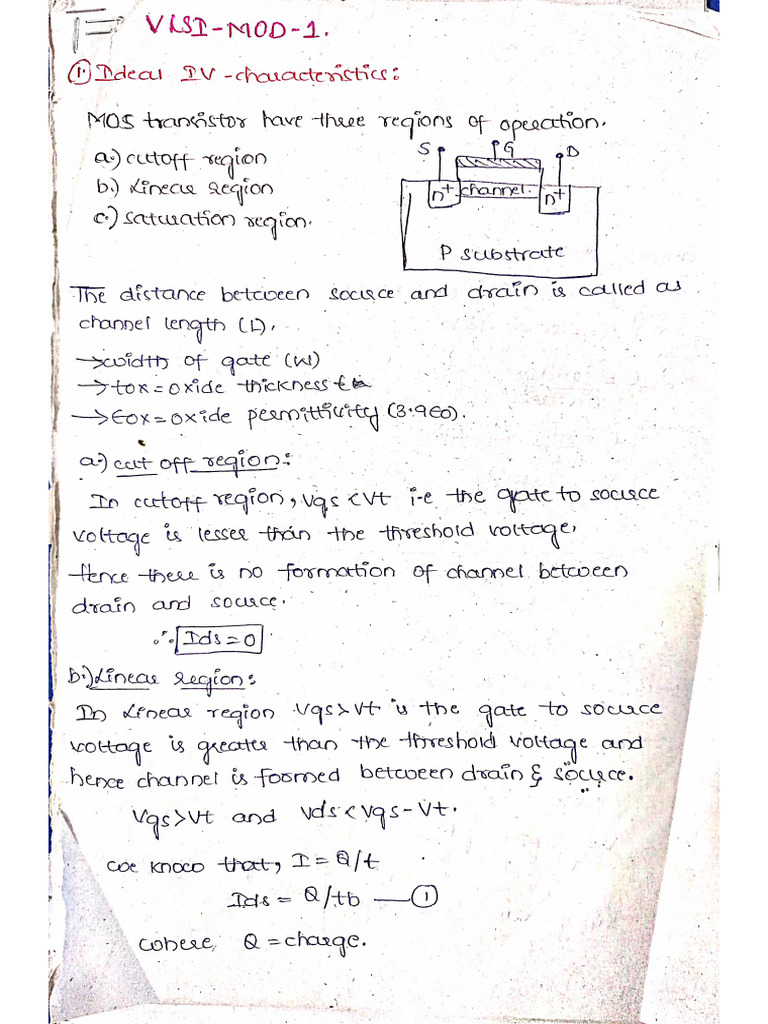 VLSI-MOD-1.
① Ideal IV-characteristics:
MOS transistor have three regions of operation.
a.) cutoff region
b.) Linear Region
c.) saturation region.
S G D
n+ channel. n+
P substrate
The distance between source and drain is called as
channel length (L).
→width of gate (W)
→tox = oxide thickness
→εox = oxide permittivity (3.9ε0).
a.) cut off region:
In cutoff region, Vgs < Vt i.e the gate to source
voltage is lesser than the threshold voltage.
Hence there is no formation of channel between
drain and source.
∴ Ids = 0
b.) Linear region:
In Linear region Vgs > Vt is the gate to source
voltage is greater than the threshold voltage and
hence channel is foormed between drain & source.
Vgs > Vt and Vds < Vgs - Vt.
we know that, I = Q/t
Ids = Q/tb — ①
where, Q = charge.